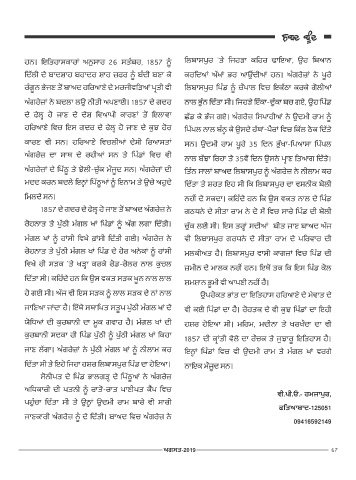 ਸ਼ਬਦ ਬੂੰਦ
ਹਨ। ਇਤਿਹਾਸਕਾਰਾਂ ਅਨੁਸਾਰ 26 ਸਤੰਬਰ, 1857 ਨੂੰ
ਦਿੱਲੀ ਦੇ ਬਾਦਸ਼ਾਹ ਬਹਾਦਰ ਸ਼ਾਹ ਜ਼ਫਰ ਨੂੰ ਬੰਦੀ ਬਣਾ ਕੇ
ਰੰਗੂਨ ਭੇਜਣ ਤੋਂ ਬਾਅਦ ਹਰਿਆਣੇ ਦੇ ਮਰਜੀਵੜਿਆਂ ਪ੍ਰਤੀ ਵੀ
ਅੰਗਰੇਜ਼ਾਂ ਨੇ ਬਦਲਾ ਲਊ ਨੀਤੀ ਅਪਣਾਈ। 1857 ਦੇ ਗਦਰ
ਦੇ ਫੇਲ੍ਹ ਹੋ ਜਾਣ ਦੇ ਦੇਸ਼ ਵਿਆਪੀ ਕਾਰਣਾਂ ਤੋਂ ਇਲਾਵਾ
ਹਰਿਆਣੇ ਵਿਚ ਇਸ ਗਦਰ ਦੇ ਫੇਲ੍ਹ ਹੋ ਜਾਣ ਦੇ ਕੁਝ ਹੋਰ
ਕਾਰਣ ਵੀ ਸਨ। ਹਰਿਆਣੇ ਵਿਚਲੀਆਂ ਦੇਸੀ ਰਿਆਸਤਾਂ
ਅੰਗਰੇਜ਼ ਦਾ ਸਾਥ ਦੇ ਰਹੀਆਂ ਸਨ ਤੇ ਪਿੰਡਾਂ ਵਿਚ ਵੀ
ਅੰਗਰੇਜ਼ਾਂ ਦੇ ਪਿੱਠੂ ਤੇ ਝੋਲੀ-ਚੁੱਕ ਮੌਜੂਦ ਸਨ। ਅੰਗਰੇਜ਼ਾਂ ਦੀ
ਮਦਦ ਕਰਨ ਬਦਲੇ ਇਨ੍ਹਾਂ ਪਿੱਠੂਆਂ ਨੂੰ ਇਨਾਮ ਤੇ ਉਚੇ ਅਹੁਦੇ
ਮਿਲਦੇ ਸਨ।
1857 ਦੇ ਗਦਰ ਦੇ ਫੇਲ੍ਹ ਹੋ ਜਾਣ ਤੋਂ ਬਾਅਦ ਅੰਗਰੇਜ਼ ਨੇ
ਰੋਹਨਾਤ ਤੇ ਪੁੱਠੀ ਮੰਗਲ ਖਾਂ ਪਿੰਡਾਂ ਨੂੰ ਅੱਗ ਲਗਾ ਦਿੱਤੀ।
ਮੰਗਲ ਖਾਂ ਨੂੰ ਹਾਂਸੀ ਵਿਖੇ ਫ਼ਾਂਸੀ ਦਿੱਤੀ ਗਈ। ਅੰਗਰੇਜ਼ ਨੇ
ਰੋਹਨਾਤ ਤੇ ਪੁੱਠੀ ਮੰਗਲ ਖਾਂ ਪਿੰਡ ਦੇ ਹੋਰ ਅਨੇਕਾਂ ਨੂੰ ਹਾਂਸੀ
ਵਿਖੇ ਈ ਸੜਕ 'ਤੇ ਖੜ੍ਹਾ ਕਰਕੇ ਰੋਡ-ਰੋਲਰ ਨਾਲ ਕੁਚਲ
ਦਿੱਤਾ ਸੀ। ਕਹਿੰਦੇ ਹਨ ਕਿ ਉਸ ਵਕਤ ਸੜਕ ਖੂਨ ਨਾਲ ਲਾਲ
ਹੋ ਗਈ ਸੀ। ਅੱਜ ਵੀ ਇਸ ਸੜਕ ਨੂੰ ਲਾਲ ਸੜਕ ਦੇ ਨਾਂ ਨਾਲ
ਜਾਣਿਆ ਜਾਂਦਾ ਹੈ। ਇੱਥੇ ਸਥਾਪਿਤ ਸਤੂਪ ਪੁੱਠੀ ਮੰਗਲ ਖਾਂ ਦੇ
ਯੋਧਿਆਂ ਦੀ ਕੁਰਬਾਨੀ ਦਾ ਮੂਕ ਗਵਾਹ ਹੈ। ਮੰਗਲ ਖਾਂ ਦੀ
ਕੁਰਬਾਨੀ ਸਦਕਾ ਹੀ ਪਿੰਡ ਪੁੱਠੀ ਨੂੰ ਪੁੱਠੀ ਮੰਗਲ ਖਾਂ ਕਿਹਾ
ਜਾਣ ਲੱਗਾ। ਅੰਗਰੇਜ਼ਾਂ ਨੇ ਪੁੱਠੀ ਮੰਗਲ ਖਾਂ ਨੂੰ ਨੀਲਾਮ ਕਰ
ਦਿੱਤਾ ਸੀ ਤੇ ਇਹੋ ਜਿਹਾ ਹਸ਼ਰ ਲਿਬਾਸਪੁਰ ਪਿੰਡ ਦਾ ਹੋਇਆ।
ਸੋਨੀਪਤ ਦੇ ਪਿੰਡ ਭਾਲਗੜ੍ਹ ਦੇ ਪਿੱਠੂਆਂ ਨੇ ਅੰਗਰੇਜ਼
ਅਧਿਕਾਰੀ ਦੀ ਪਤਨੀ ਨੂੰ ਰਾਤੋ-ਰਾਤ ਪਾਣੀਪਤ ਕੈਂਪ ਵਿਚ
ਪਹੁੰਚਾ ਦਿੱਤਾ ਸੀ ਤੇ ਉਨ੍ਹਾਂ ਉਦਮੀ ਰਾਮ ਬਾਰੇ ਵੀ ਸਾਰੀ
ਜਾਣਕਾਰੀ ਅੰਗਰੇਜ਼ ਨੂੰ ਦੇ ਦਿੱਤੀ। ਬਾਅਦ ਵਿਚ ਅੰਗਰੇਜ਼ ਨੇ
ਲਿਬਾਸਪੁਰ 'ਤੇ ਜਿਹੜਾ ਕਹਿਰ ਢਾਇਆ, ਉਹ ਬਿਆਨ
ਕਰਦਿਆਂ ਅੱਖਾਂ ਭਰ ਆਉਂਦੀਆਂ ਹਨ। ਅੰਗਰੇਜ਼ਾਂ ਨੇ ਪੂਰੇ
ਲਿਬਾਸਪੁਰ ਪਿੰਡ ਨੂੰ ਚੌਪਾਲ ਵਿਚ ਇਕੱਠਾ ਕਰਕੇ ਗੋਲੀਆਂ
ਨਾਲ ਭੁੰਨ ਦਿੱਤਾ ਸੀ। ਜਿਹੜੇ ਇੱਕਾ-ਦੁੱਕਾ ਬਚ ਗਏ, ਉਹ ਪਿੰਡ
ਛੱਡ ਕੇ ਭੱਜ ਗਏ। ਅੰਗਰੇਜ਼ ਸਿਪਾਹੀਆਂ ਨੇ ਉਦਮੀ ਰਾਮ ਨੂੰ
ਪਿੱਪਲ ਨਾਲ ਬੰਨ੍ਹ ਕੇ ਉਸਦੇ ਹੱਥਾਂ-ਪੈਰਾਂ ਵਿਚ ਕਿੱਲ ਠੋਕ ਦਿੱਤੇ
ਸਨ। ਉਦਮੀ ਰਾਮ ਪੂਰੇ 35 ਦਿਨ ਭੁੱਖਾ-ਪਿਆਸਾ ਪਿੱਪਲ
ਨਾਲ ਬੱਝਾ ਰਿਹਾ ਤੇ 35ਵੇਂ ਦਿਨ ਉਸਨੇ ਪ੍ਰਾਣ ਤਿਆਗ ਦਿੱਤੇ।
ਤਿੰਨ ਸਾਲਾਂ ਬਾਅਦ ਲਿਬਾਸਪੁਰ ਨੂੰ ਅੰਗਰੇਜ਼ ਨੇ ਨੀਲਾਮ ਕਰ
ਦਿੱਤਾ ਤੇ ਸ਼ਰਤ ਇਹ ਸੀ ਕਿ ਲਿਬਾਸਪੁਰ ਦਾ ਵਸਨੀਕ ਬੋਲੀ
ਨਹੀਂ ਦੇ ਸਕਦਾ। ਕਹਿੰਦੇ ਹਨ ਕਿ ਉਸ ਵਕਤ ਨਾਲ ਦੇ ਪਿੰਡ
ਗਠਧਨੇ ਦੇ ਸੀਤਾ ਰਾਮ ਨੇ ਦੋ ਸੌ ਵਿਚ ਸਾਰੇ ਪਿੰਡ ਦੀ ਬੋਲੀ
ਚੁੱਕ ਲਈ ਸੀ। ਇਸ ਤਰ੍ਹਾਂ ਸਦੀਆਂ ਬੀਤ ਜਾਣ ਬਾਅਦ ਅੱਜ
ਵੀ ਲਿਬਾਸਪੁਰ ਗਰਧਨੇ ਦੇ ਸੀਤਾ ਰਾਮ ਦੇ ਪਰਿਵਾਰ ਦੀ
ਮਲਕੀਅਤ ਹੈ। ਲਿਬਾਸਪੁਰ ਵਾਸੀ ਕਾਗਜ਼ਾਂ ਵਿਚ ਪਿੰਡ ਦੀ
ਜ਼ਮੀਨ ਦੇ ਮਾਲਕ ਨਹੀਂ ਹਨ। ਇਥੋਂ ਤਕ ਕਿ ਇਸ ਪਿੰਡ ਕੋਲ
ਸ਼ਮਸ਼ਾਨ ਭੂਮੀ ਵੀ ਆਪਣੀ ਨਹੀਂ ਹੈ।
ਉਪਰੋਕਤ ਭਾਂਤ ਦਾ ਇਤਿਹਾਸ ਹਰਿਆਣੇ ਦੇ ਮੇਵਾਤ ਦੇ
ਵੀ ਕਈ ਪਿੰਡਾਂ ਦਾ ਹੈ। ਰੋਹਤਕ ਦੇ ਵੀ ਕੁਝ ਪਿੰਡਾਂ ਦਾ ਇਹੀ
ਹਸ਼ਰ ਹੋਇਆ ਸੀ। ਮਹਿਮ, ਮਦੀਨਾ ਤੇ ਖਰਖੌਦਾ ਦਾ ਵੀ
1857 ਦੀ ਕ੍ਰਾਂਤੀ ਵੇਲੇ ਦਾ ਰੌਚਕ ਤੇ ਜੁਝਾਰੂ ਇਤਿਹਾਸ ਹੈ।
ਇਨ੍ਹਾਂ ਪਿੰਡਾਂ ਵਿਚ ਵੀ ਉਦਮੀ ਰਾਮ ਤੇ ਮੰਗਲ ਖਾਂ ਵਰਗੇ
ਨਾਇਕ ਮੌਜੂਦ ਸਨ।
ਵੀ.ਪੀ.ਓ.- ਹਮਜਾਪੁਰ,
ਫਤਿਆਬਾਦ-125051
09416592149
ਅਗਸਤ-2019
67